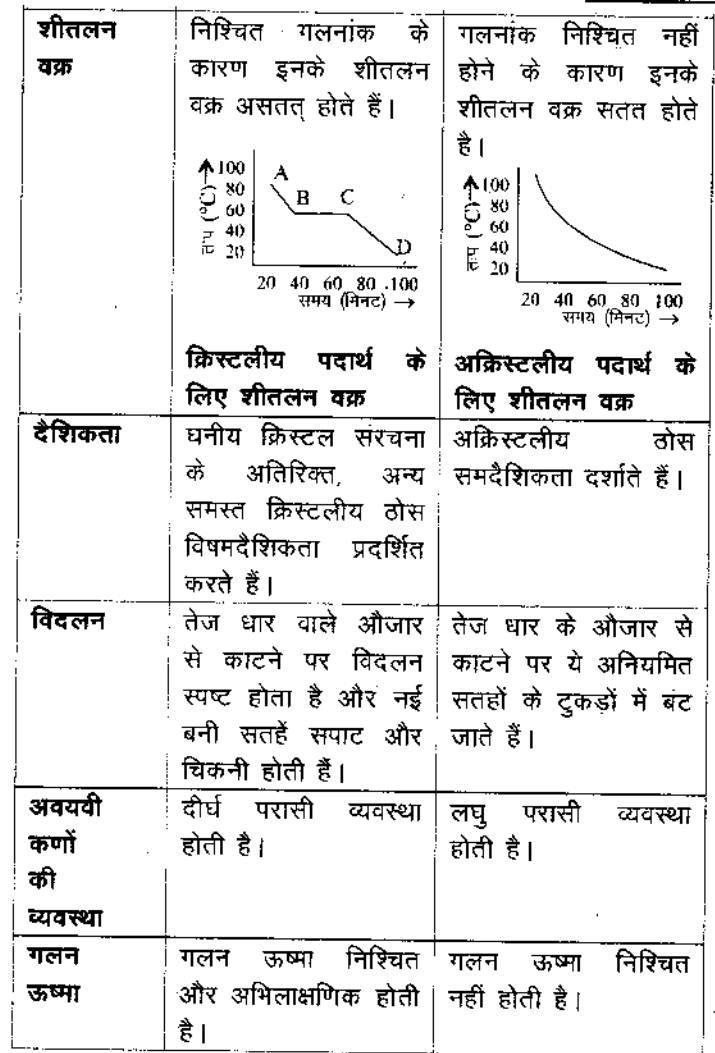 शीतलन
वक्र
निश्चित गलनांक के
कारण इनके शीतलन
वक्र असतत् होते हैं।
100
80
60
40
20
ताप (°C)→
A
B
C
D
20 40 60 80 100
समय (मिनट) →
क्रिस्टलीय पदार्थ के
लिए शीतलन वक्र
गलनांक निश्चित नहीं
होने के कारण इनके
शीतलन वक्र सतत होते
है।
100
80
60
40
20
ताप (°C)→
20 40 60 80 100
समय (मिनट) →
अक्रिस्टलीय पदार्थ के
लिए शीतलन वक्र
दैशिकता
घनीय क्रिस्टल संरचना
के अतिरिक्त, अन्य
समस्त क्रिस्टलीय ठोस
विषमदैशिकता प्रदर्शित
करते हैं।
अक्रिस्टलीय ठोस
समदैशिकता दर्शाते हैं।
विदलन
तेज धार वाले औजार
से काटने पर विदलन
स्पष्ट होता है और नई
बनी सतहें सपाट और
चिकनी होती हैं।
तेज धार के औजार से
काटने पर ये अनियमित
सतहों के टुकड़ों में बंट
जाते हैं।
अवयवी
कणों
की
व्यवस्था
दीर्घ परासी व्यवस्था
होती है।
लघु परासी व्यवस्था
होती है।
गलन
ऊष्मा
गलन ऊष्मा निश्चित
और अभिलाक्षणिक होती
है।
गलन ऊष्मा निश्चित
नहीं होती है।